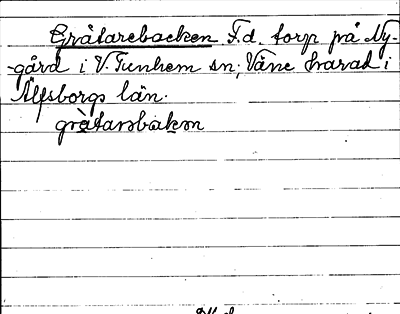 Gråtarebacken F.d. torp på Ny-
-gård i V. Tunhem sn; Väne härad i
Älfsborgs län.
gràtarsbakɷn